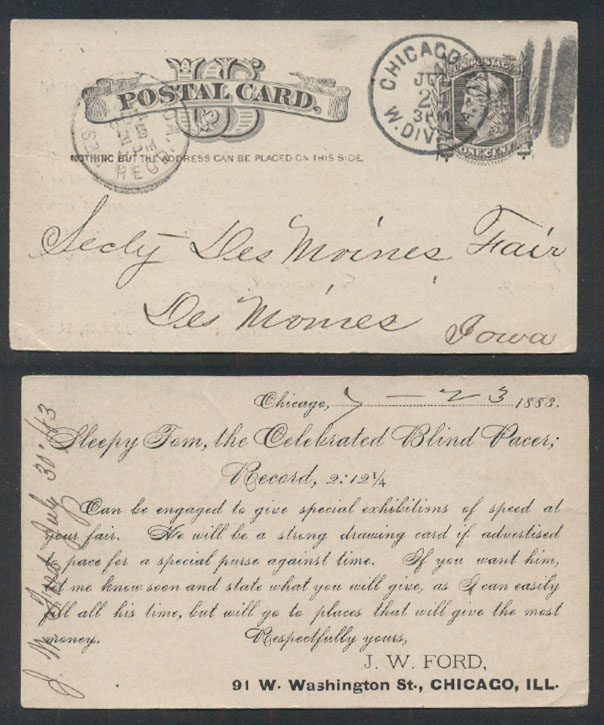 US
POSTAL CARD.
NOTHING BUT THE ADDRESS CAN BE PLACED ON THIS SIDE.
CHICAGO
JUL
3PM
W. DIV
U.S. POSTAGE
ONE CENT
REC'D
Secty Des Moines Fair
Des Moines
Iowa
Chicago, 7 – 23 1883.
Sleepy Tom, the Celebrated Blind Pacer;
Record, 2:12 1/4
Can be engaged to give special exhibitions of speed at
your fair. He will be a strong drawing card if advertised
to pace for a special purse against time. If you want him,
let me know soon and state what you will give, as I can easily
fill all his time, but will go to places that will give the most
money. Respectfully yours,
J. W. FORD,
91 W. Washington St., CHICAGO, ILL.
J. W. Ford July 30'/83